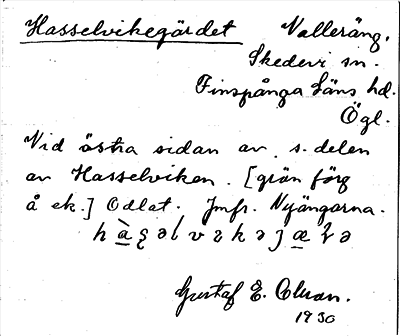 Hasselvikegärdet Valleräng,
Skedevi sn.
Finspånga Läns hd.
Ögl.
Vid östra sidan av s. delen
av Hasselviken. [grön färg
å ek.] Odlat. Jmfr. Nyängarna.
Gustaf E.
1930